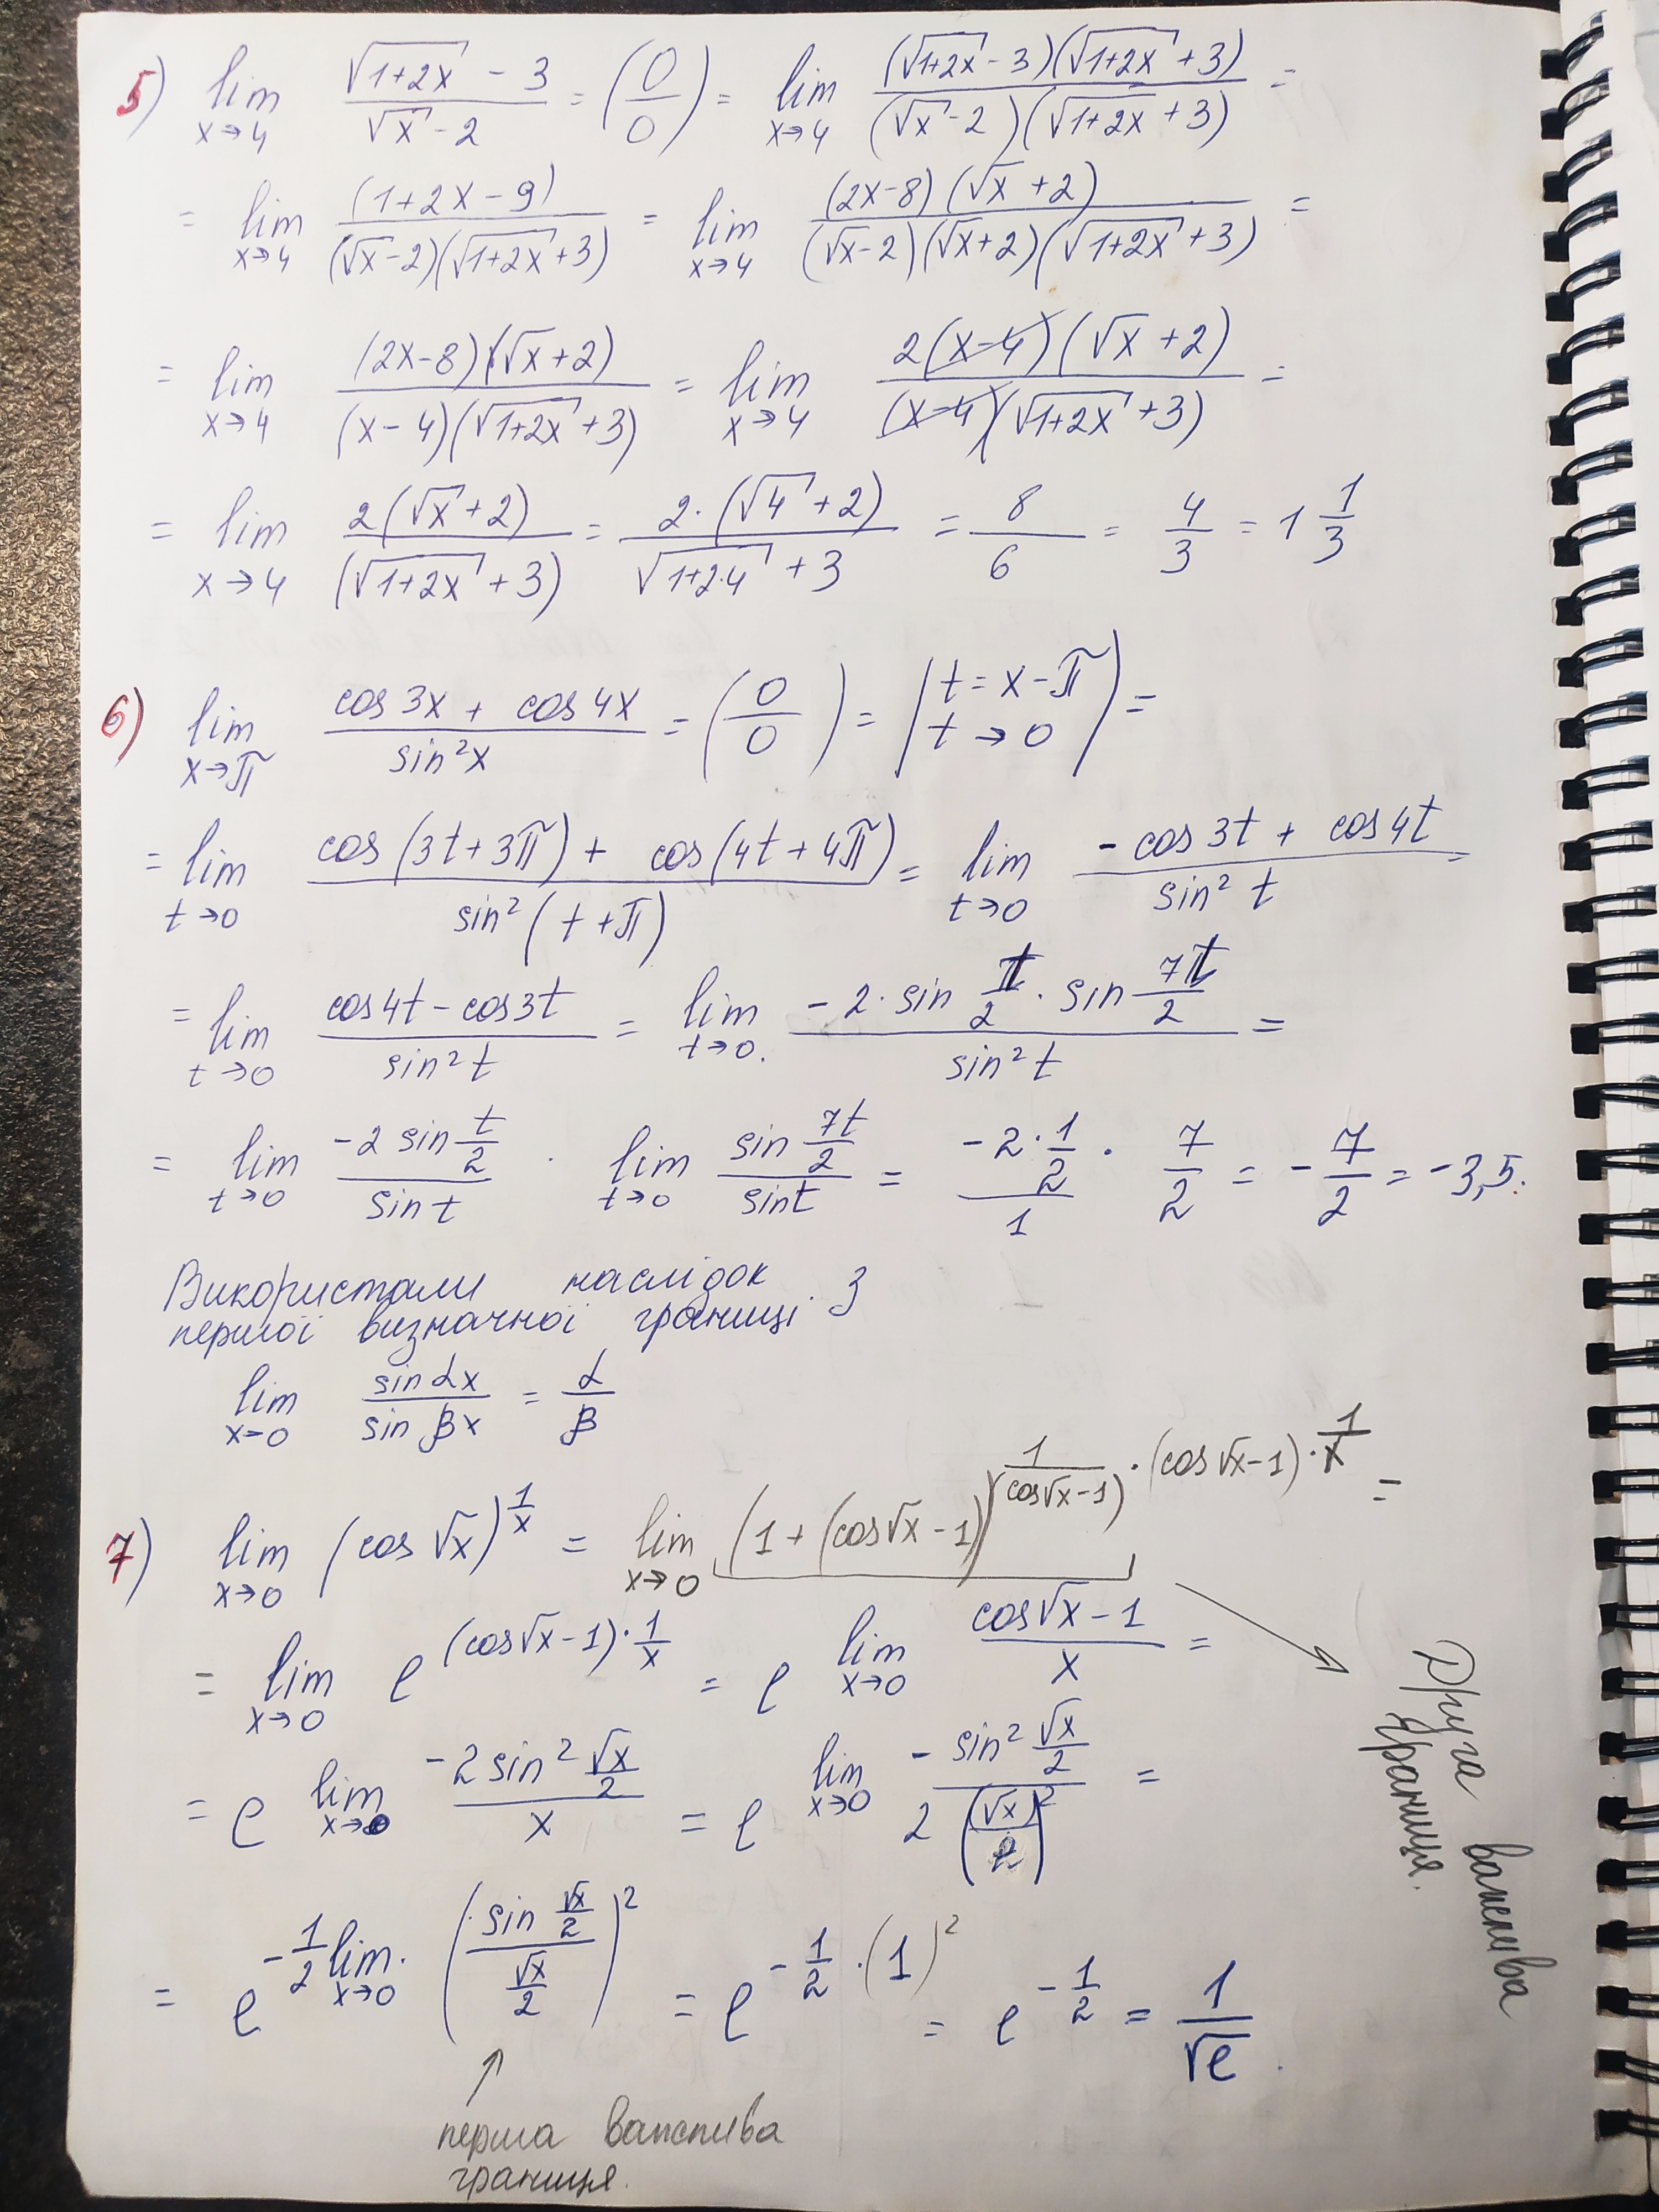 5) lim x→4 (√(1+2x) - 3)/(√x - 2) = (0/0) = lim x→4 ((√(1+2x) - 3)(√(1+2x) + 3))/((√x - 2)(√(1+2x) + 3)) =
= lim x→4 (1+2x-9)/((√x-2)(√(1+2x)+3)) = lim x→4 ((2x-8)(√x+2))/((√x-2)(√x+2)(√(1+2x)+3)) =
= lim x→4 ((2x-8)(√x+2))/((x-4)(√(1+2x)+3)) = lim x→4 (2(x-4)(√x+2))/((x-4)(√(1+2x)+3)) =
= lim x→4 (2(√x+2))/((√(1+2x)+3)) = (2·(√4+2))/(√(1+2·4)+3) = 8/6 = 4/3 = 1 1/3
6) lim x→π (cos 3x + cos 4x)/(sin²x) = (0/0) = |t = x-π t→0| =
= lim t→0 (cos(3t+3π) + cos(4t+4π))/(sin²(t+π)) = lim t→0 (-cos 3t + cos 4t)/(sin² t) =
= lim t→0 (cos4t - cos3t)/(sin²t) = lim t→0. (-2·sin t/2 · sin 7t/2)/(sin²t) =
= lim t→0 (-2 sin t/2)/(sin t) · lim t→0 (sin 7t/2)/(sin t) = (-2·1/2)/1 · 7/2 = -7/2 = -3,5.
Використали наслідок 3
першої визначної границі.
lim x→0 (sin αx)/(sin βx) = α/β
7) lim x→0 (cos √x)^(1/x) = lim x→0 (1+(cos√x-1))^(1/(cos√x-1) · (cos√x-1) · 1/x) =
= lim x→0 e^((cos√x-1)·1/x) = e^(lim x→0 (cos√x-1)/x) =
Друга важлива
границя.
= e^(lim x→0 (-2sin² √x/2)/x) = e^(lim x→0 (-sin² √x/2)/(2(√x/2)²)) =
= e^(-1/2 lim x→0 · ((sin √x/2)/(√x/2))²) = e^(-1/2·(1)²) = e^(-1/2) = 1/√e.
перша важлива
границя.